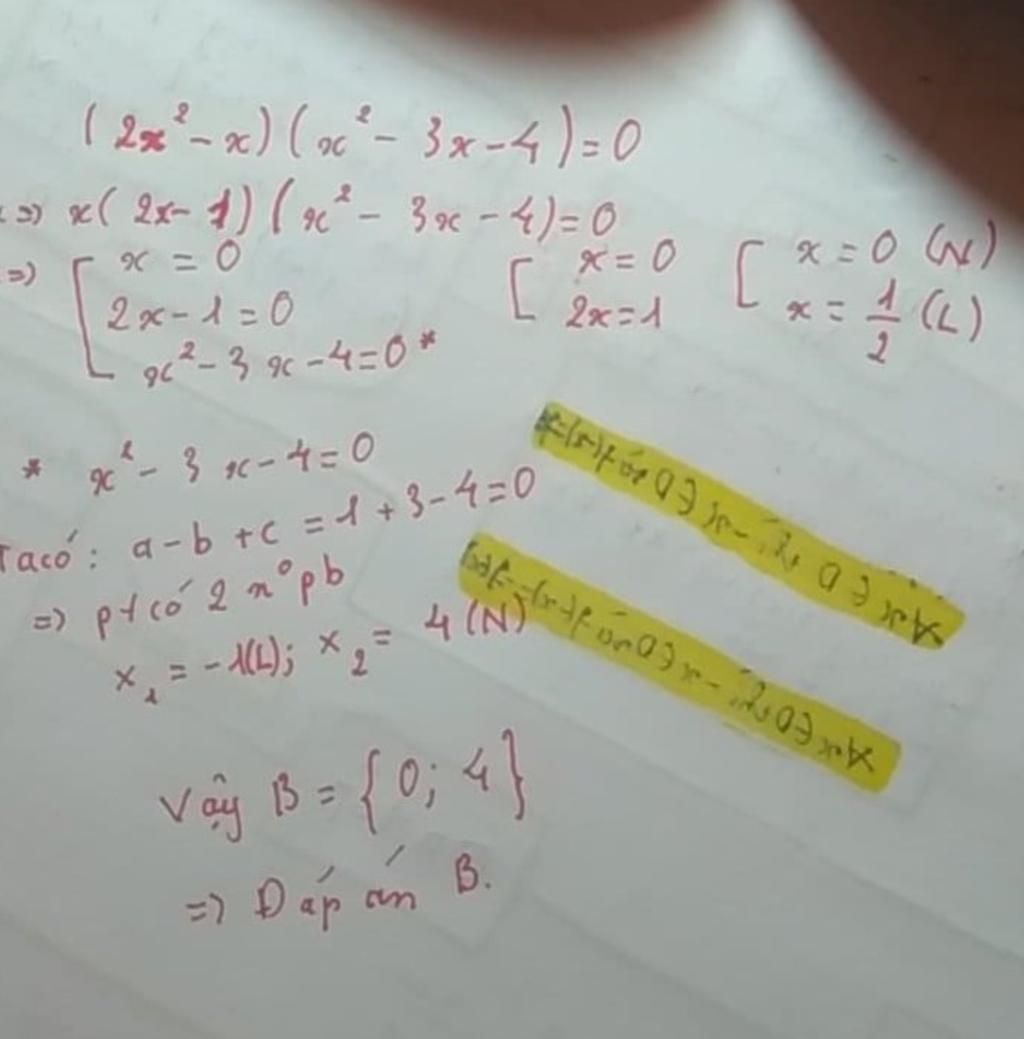 (2x² - x)(x² - 3x - 4) = 0
(=) x(2x - 1)(x² - 3x - 4) = 0
=) [ x = 0 [ x = 0 [ x = 0 (N)
2x - 1 = 0 2x = 1 x = 1/2 (L)
x² - 3x - 4 = 0 *
* x² - 3x - 4 = 0
Ta có: a - b + c = 1 + 3 - 4 = 0
=) pt có 2 n° pb
x₁ = -1(L); x₂ = 4 (N)
Vậy B = {0; 4}
=) Đáp án B.